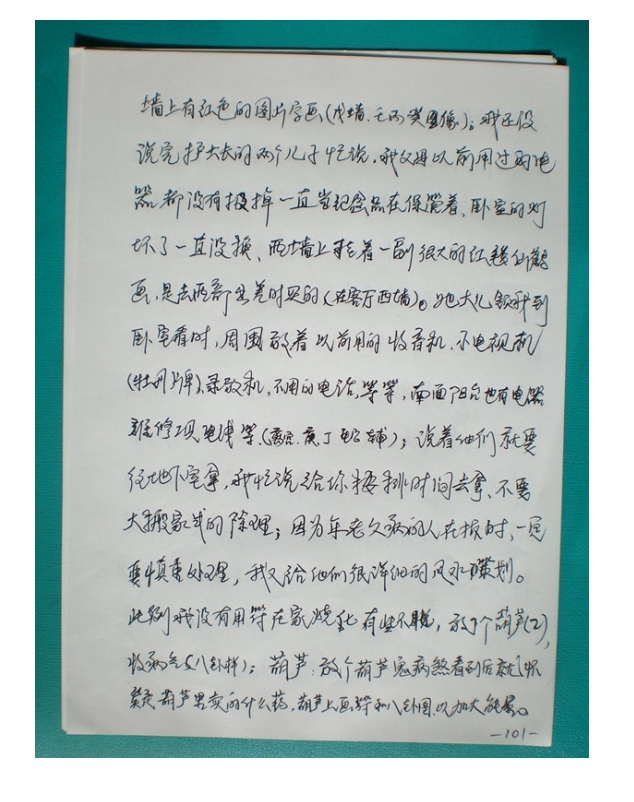 墙上有红色的图片字画(戊墙、壬丙癸图像)；我还没
说完护大长的两个儿子忙说，我父母以前用过的电
器都没有报掉一直当纪念品在保管着、卧室的灯
坏了一直没换、西墙上挂着一副很大的红楼仙鹤
画，是去西部出差时买的(在客厅西墙)。她大儿领我到
卧室看时，周围放着以前用的收音机、小电视机
(牡丹牌)、录放机，不用的电话，等等，南面阳台也有电器
维修项电线等(离宫、庚丁 辅)；说着他们就要
往地下室拿，我忙说给你按排时间去拿、不要
大搬家式的除理；因为年老久病的人在损时，一定
要慎重处理，我又给他们很详细的风水策划。
此例我没有用符在家烧化有些不脱，放了个葫芦(2)，
收病气(八卦样)；葫芦：放个葫芦鬼病煞看到后就怀
疑葫芦里卖的什么药，葫芦上画符和八卦图以加大能量。
-101-